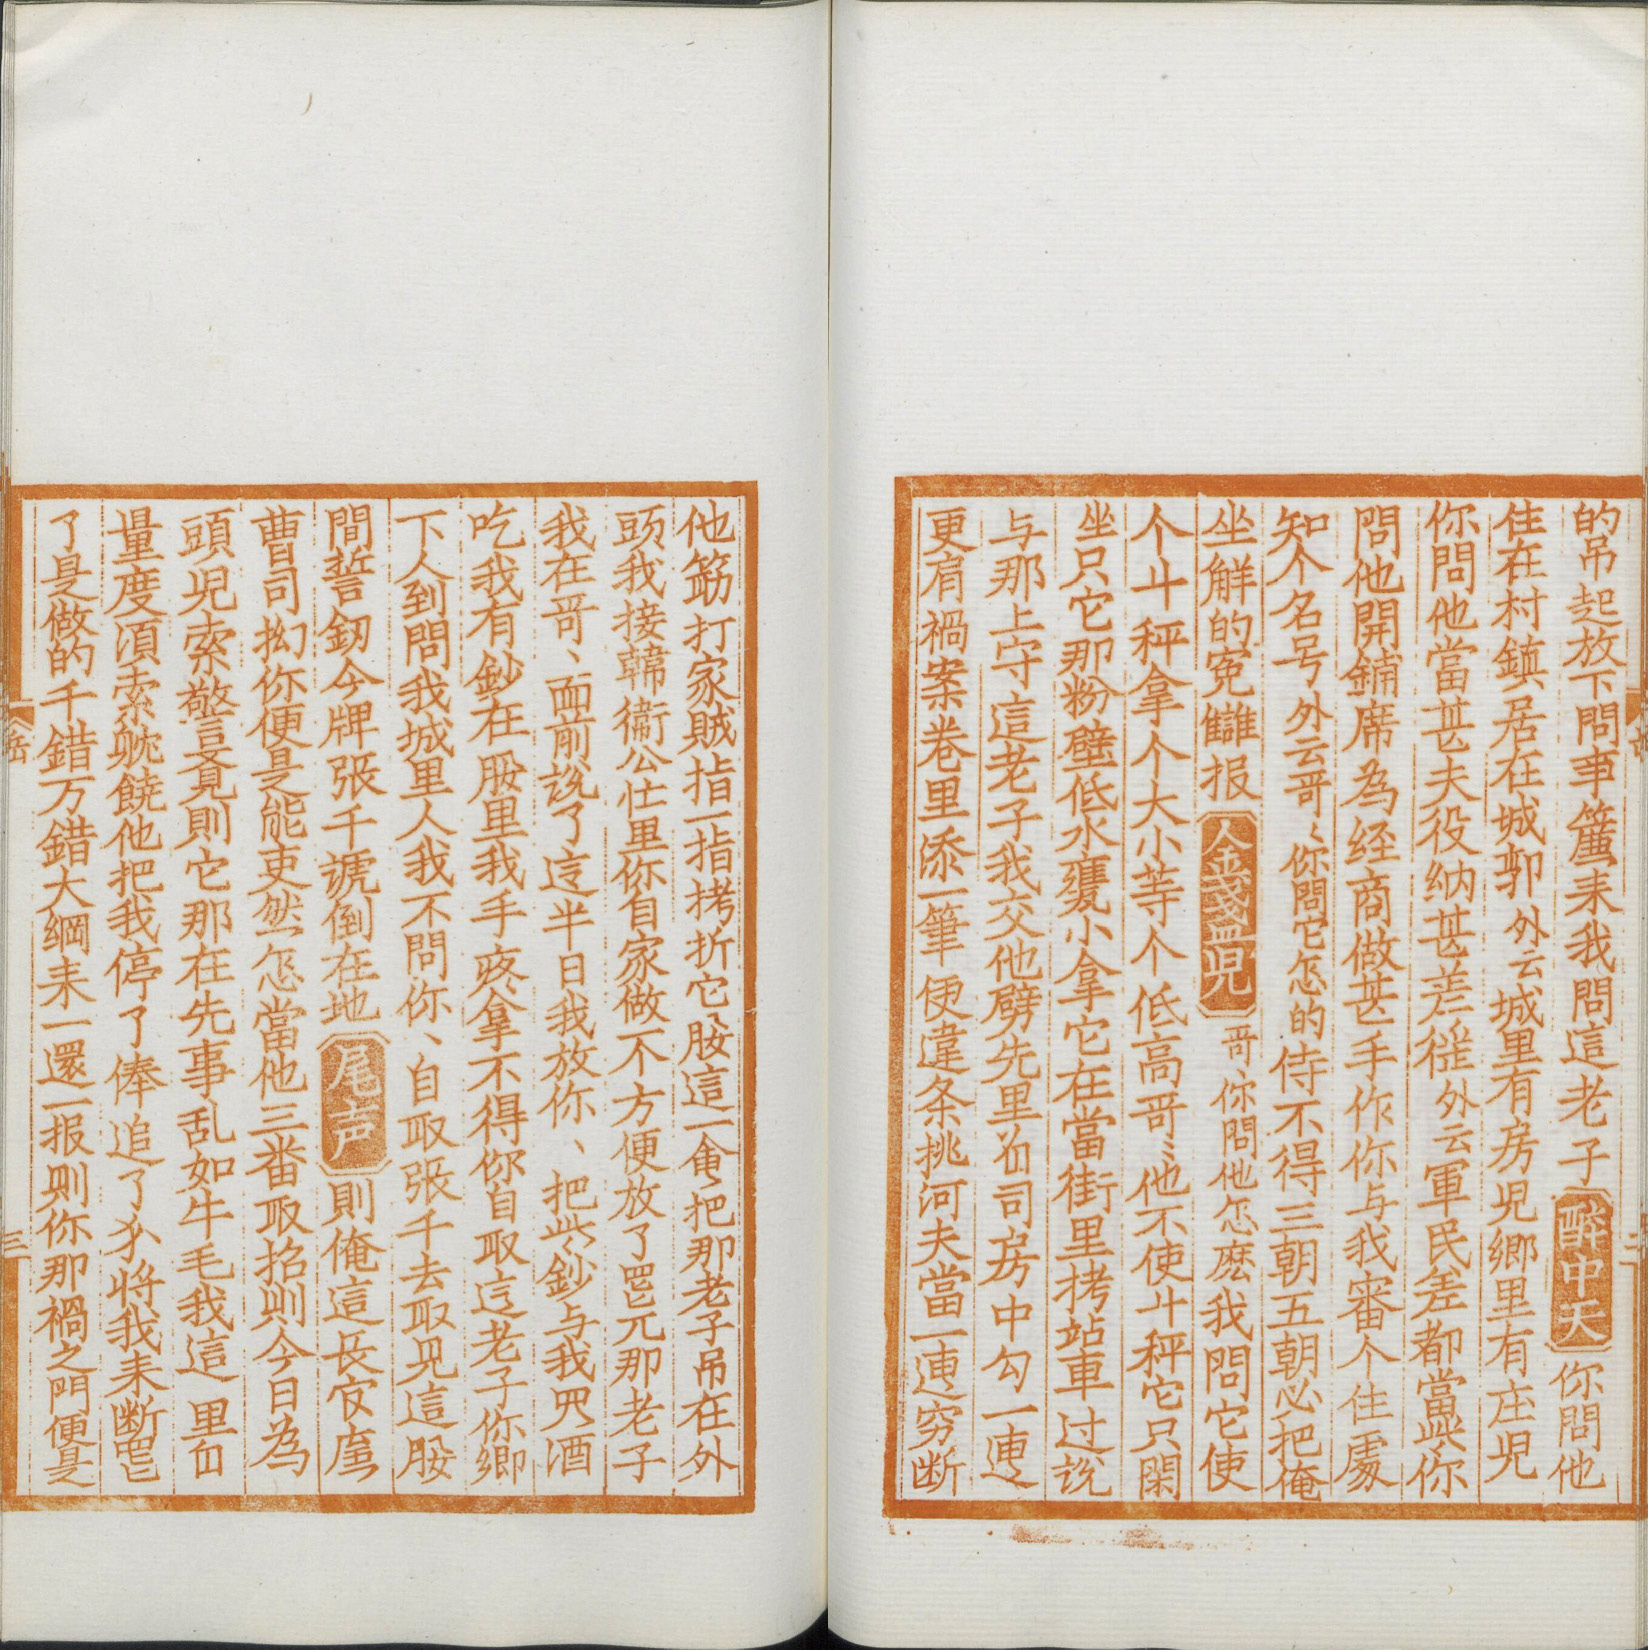 的吊起放下問事簾来我問這老子醉中天你問他
住在村鎮居在城郭外云城里有房児郷里有庄児
你問他當甚夫役納甚差徭外云軍民差都當與你
問他開鋪席為经商做甚手作你与我審个住處
知个名号外云哥〻你問它怎的侍不得三朝五朝必把俺
坐觧的寃讎报金盞児哥〻你問他怎麽我問它使
个斗秤拿个大小等个低高哥〻他不使斗秤它只閑
坐只它那粉壁低水甕小拿它在當街里拷站車过說
与那上守這老子我交他劈先里司房中勾一遭
更肩禍案卷里添一筆便違条挑河夫當一遭穷断
他筯打家賊指一指拷折它腰這一會把那老子吊在外
頭我接韓衙公仕里你自家做个方便放了罷兀那老子
我在哥〻面前說了這半日我放你〻把些鈔与我買酒
吃我有鈔在腰里我手疼拿不得你自取這老子你鄉
下人到問我城里人我不問你〻自取張千去取児這腰
間誓釰金牌張千諕倒在地尾声則俺這長官廳
曹司拗你便是能吏怎當他三番取招則今日為
頭児索警覔則它那在先事乱如牛毛我這里
量度湏索躭饒他把我停了俸追了将我来断罷
了是做的千錯万錯大綱来一還一报则你那禍之門便是
岳
三